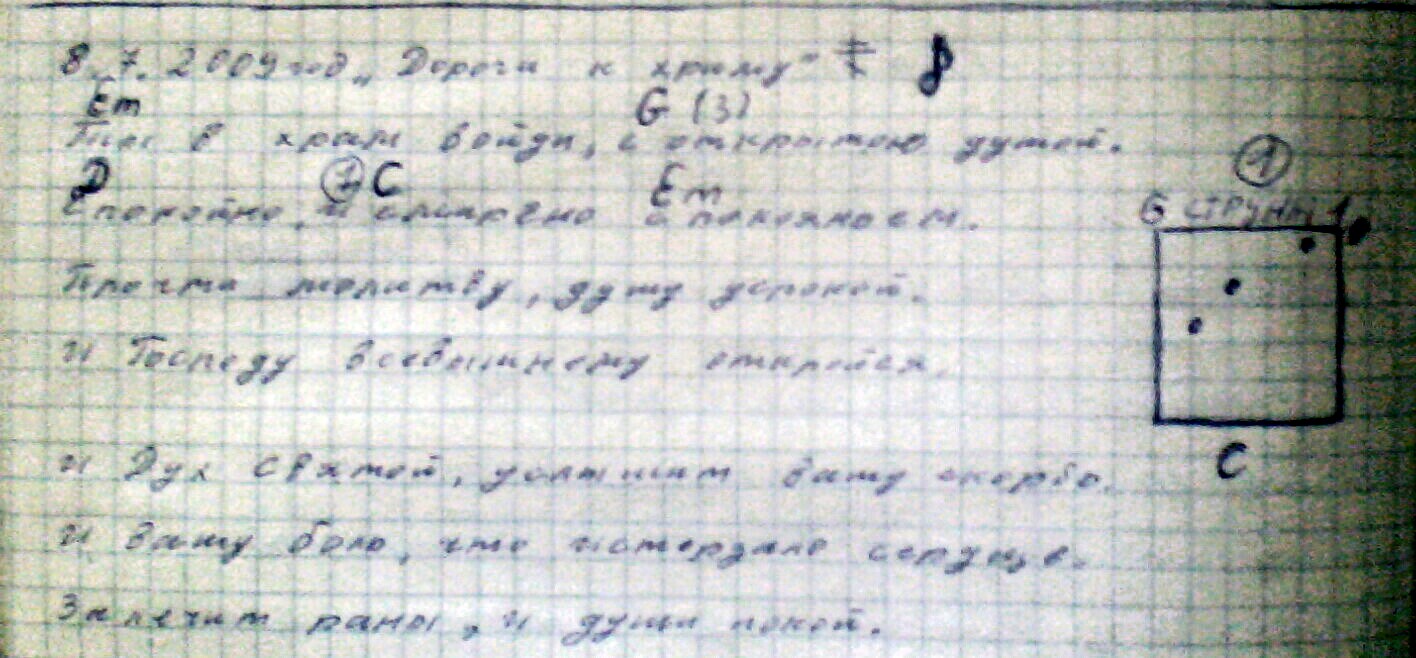 8. 7. 2009 год „Дорога к храму"
Em G (3)
Ты в храм войди, с открытою душой.
D ① C Em
Спокойно, и смирено с покояноем.
①
6 струны 1
Прочти молитву, душу успокой.
И Господу всевышнему откройся.
C
И Дух святой, услышит вашу скорбь.
И вашу боль, что истерзало сердце.
Залечит раны, и души покой.